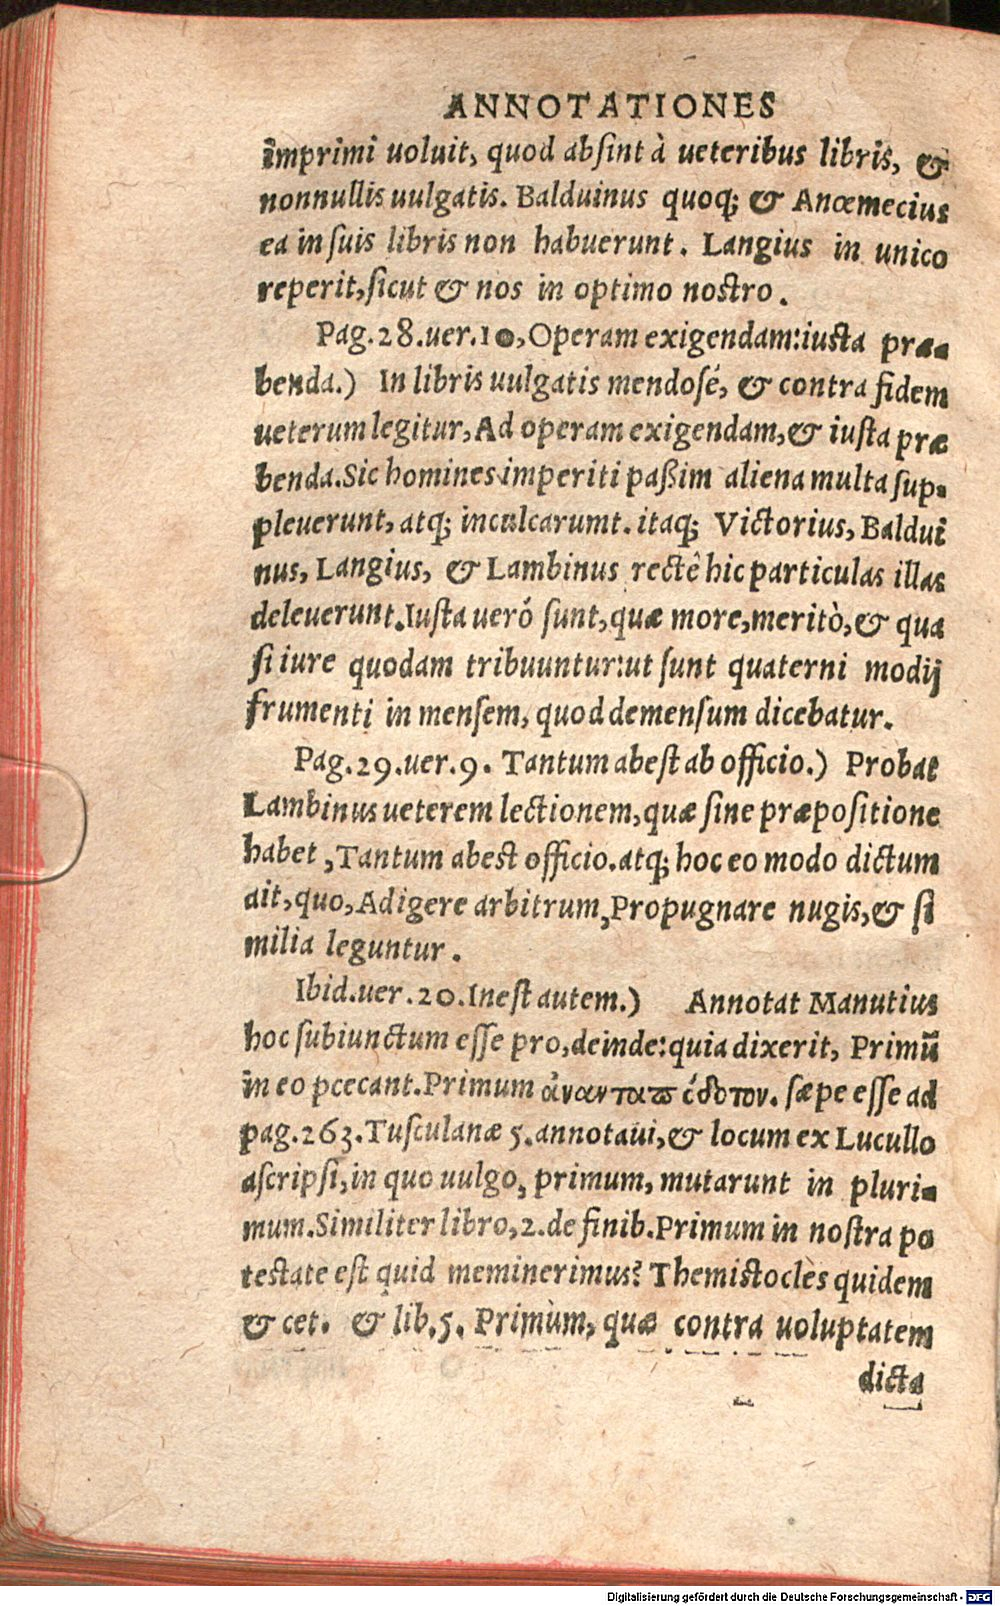 ANNOTATIONES
imprimi uoluit, quod absint à ueteribus libris, &
nonnullis uulgatis. Balduinus quoq; & Anœmecius
ea in suis libris non habuerunt. Langius in unico
reperit, sicut & nos in optimo nostro.
Pag. 28. uer. 10, Operam exigendam: iusta præ-
benda.) In libris uulgatis mendosé, & contra fidem
ueterum legitur, Ad operam exigendam, & iusta præ
benda. Sic homines imperiti paßim aliena multa sup-
pleuerunt, atq; inculcarumt. itaq; Victorius, Baldui
nus, Langius, & Lambinus rectê hic particulas illas
deleuerunt. Iusta ueró sunt, quæ more, meritò, & qua
si iure quodam tribuuntur: ut sunt quaterni modij
frumenti in mensem, quod demensum dicebatur.
Pag. 29. uer. 9. Tantum abest ab officio.) Probat
Lambinus ueterem lectionem, quæ sine præpositione
habet, Tantum abest officio. atq; hoc eo modo dictum
ait, quo, Adigere arbitrum, Propugnare nugis, & si
milia leguntur.
Ibid. uer. 20. Inest autem.) Annotat Manutius
hoc subiunctum esse pro, deinde: quia dixerit, Primū
in eo pcecant. Primum sæpe esse ad
pag. 263. Tusculanæ 5. annotaui, & locum ex Lucullo
ascripsi, in quo uulgo, primum, mutarunt in pluri-
mum. Similiter libro, 2. de finib. Primum in nostra po
testate est quid meminerimus? Themistocles quidem
& cet. & lib. 5. Primùm, quæ contra uoluptatem
dicta
Digitalisierung gefördert durch die Deutsche Forschungsgemeinschaft - DFG